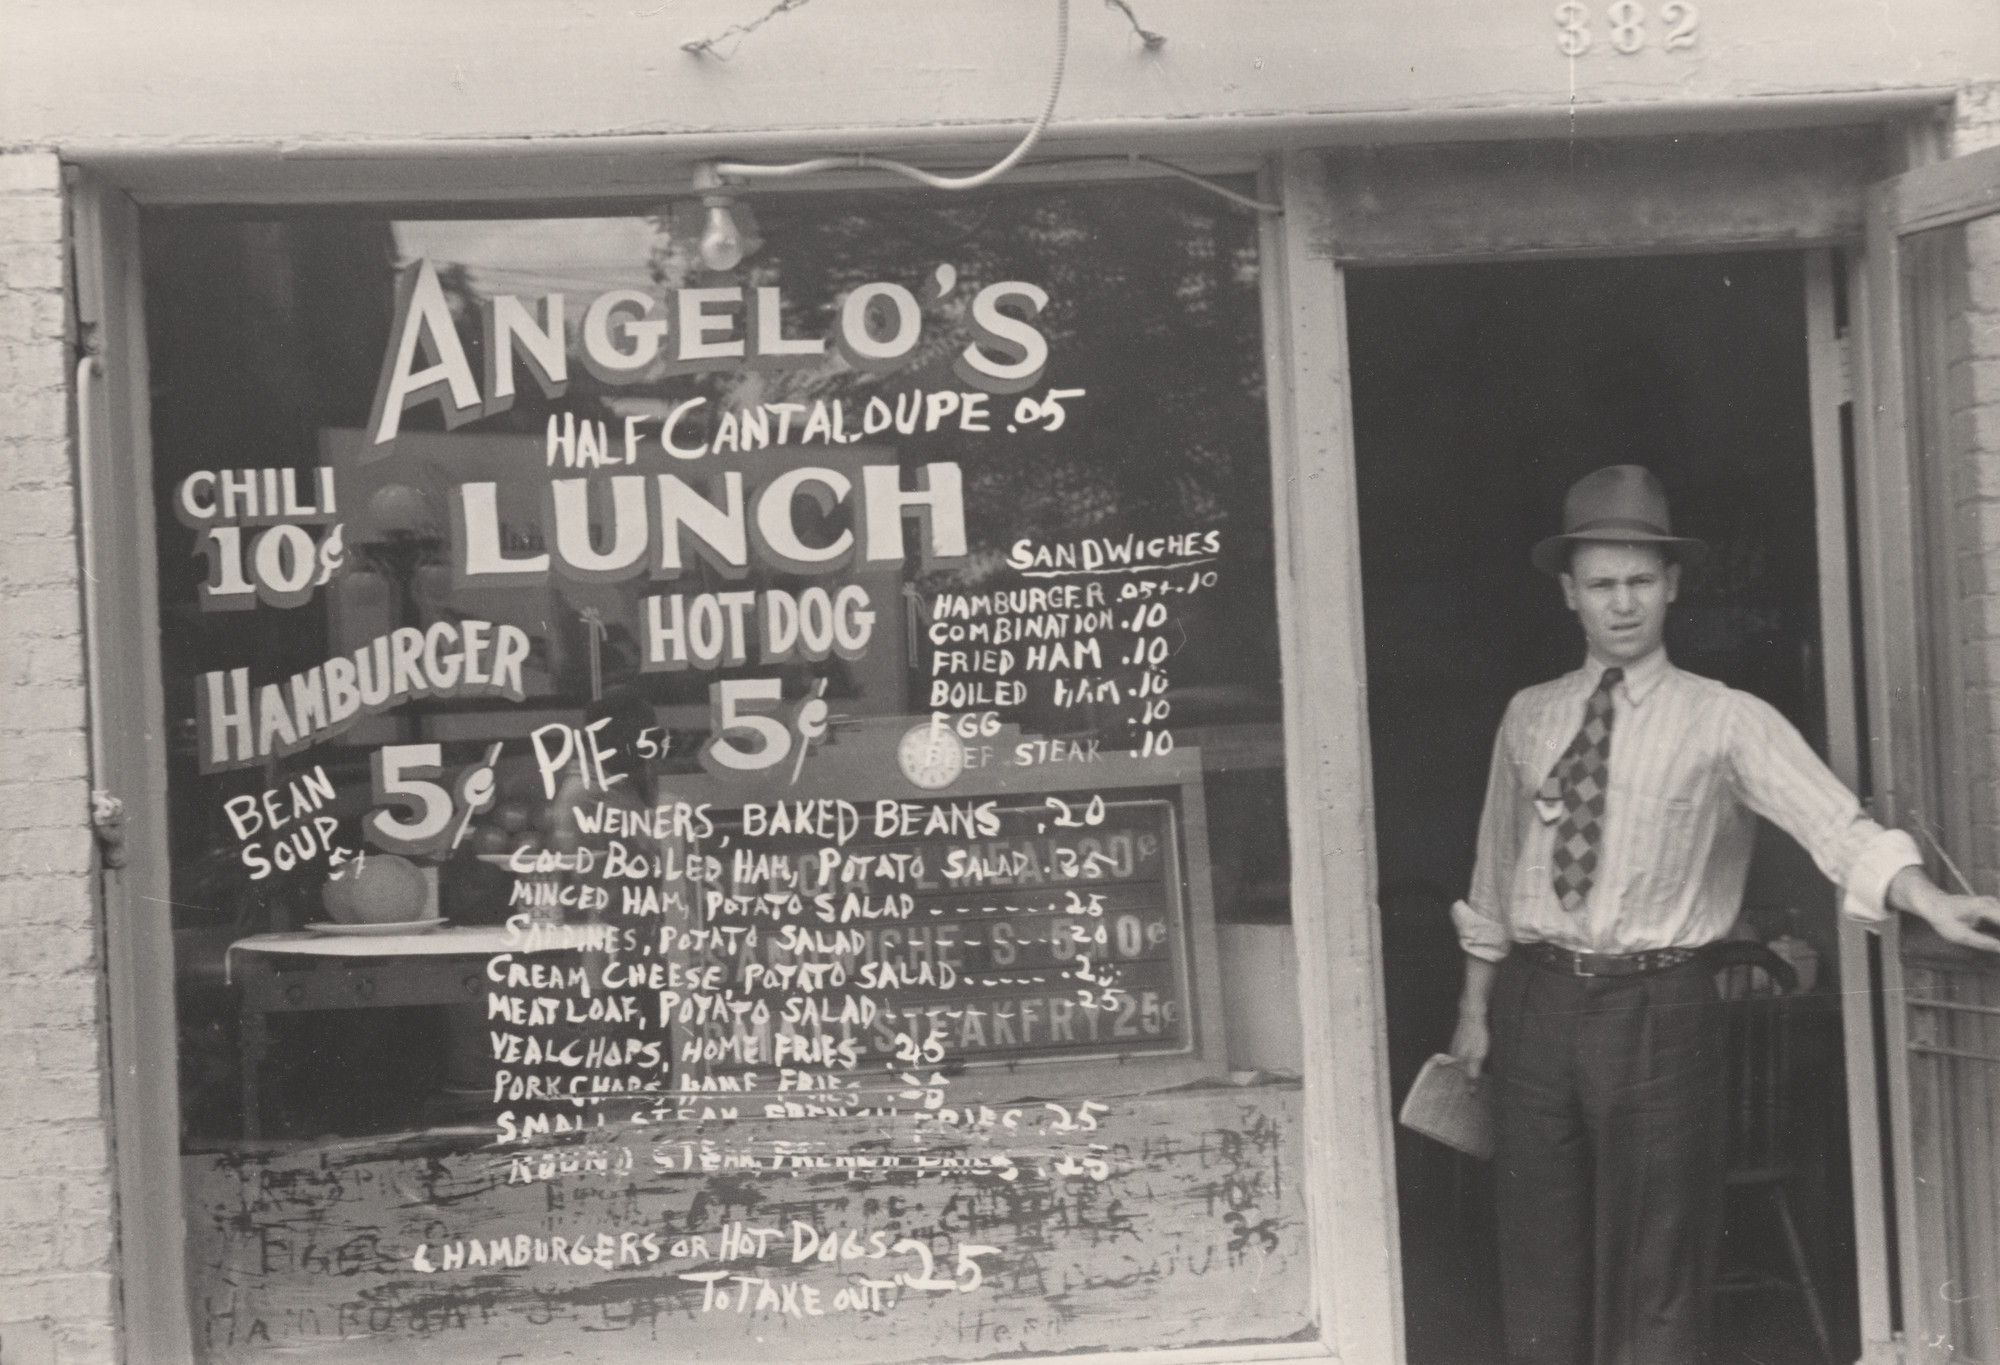 382
ANGELO'S
HALF CANTALOUPE .05
LUNCH
CHILI
10¢
HAMBURGER
5¢
HOT DOG
5¢
PIE 5¢
BEAN
SOUP
5¢
SANDWICHES
HAMBURGER .05+.10
COMBINATION .10
FRIED HAM .10
BOILED HAM .10
EGG .10
BEEF STEAK .10
WEINERS, BAKED BEANS .20
COLD BOILED HAM, POTATO SALAD .25
MINCED HAM, POTATO SALAD - - - - - - .25
SARDINES, POTATO SALAD - - - - - - .20
CREAM CHEESE, POTATO SALAD - - - - -
MEAT LOAF, POTATO SALAD - - - - - - - .25
VEAL CHOPS, HOME FRIES .25
PORK CHOPS, HOME FRIES
SMALL STEAK FRENCH FRIES .25
ROUND STEAK, FRENCH FRIES .25
6 HAMBURGERS OR HOT DOGS 25
TO TAKE OUT.
SPECIAL MEAL 30¢
SANDWICHES 5 10¢
SMALL STEAK FRY 25¢